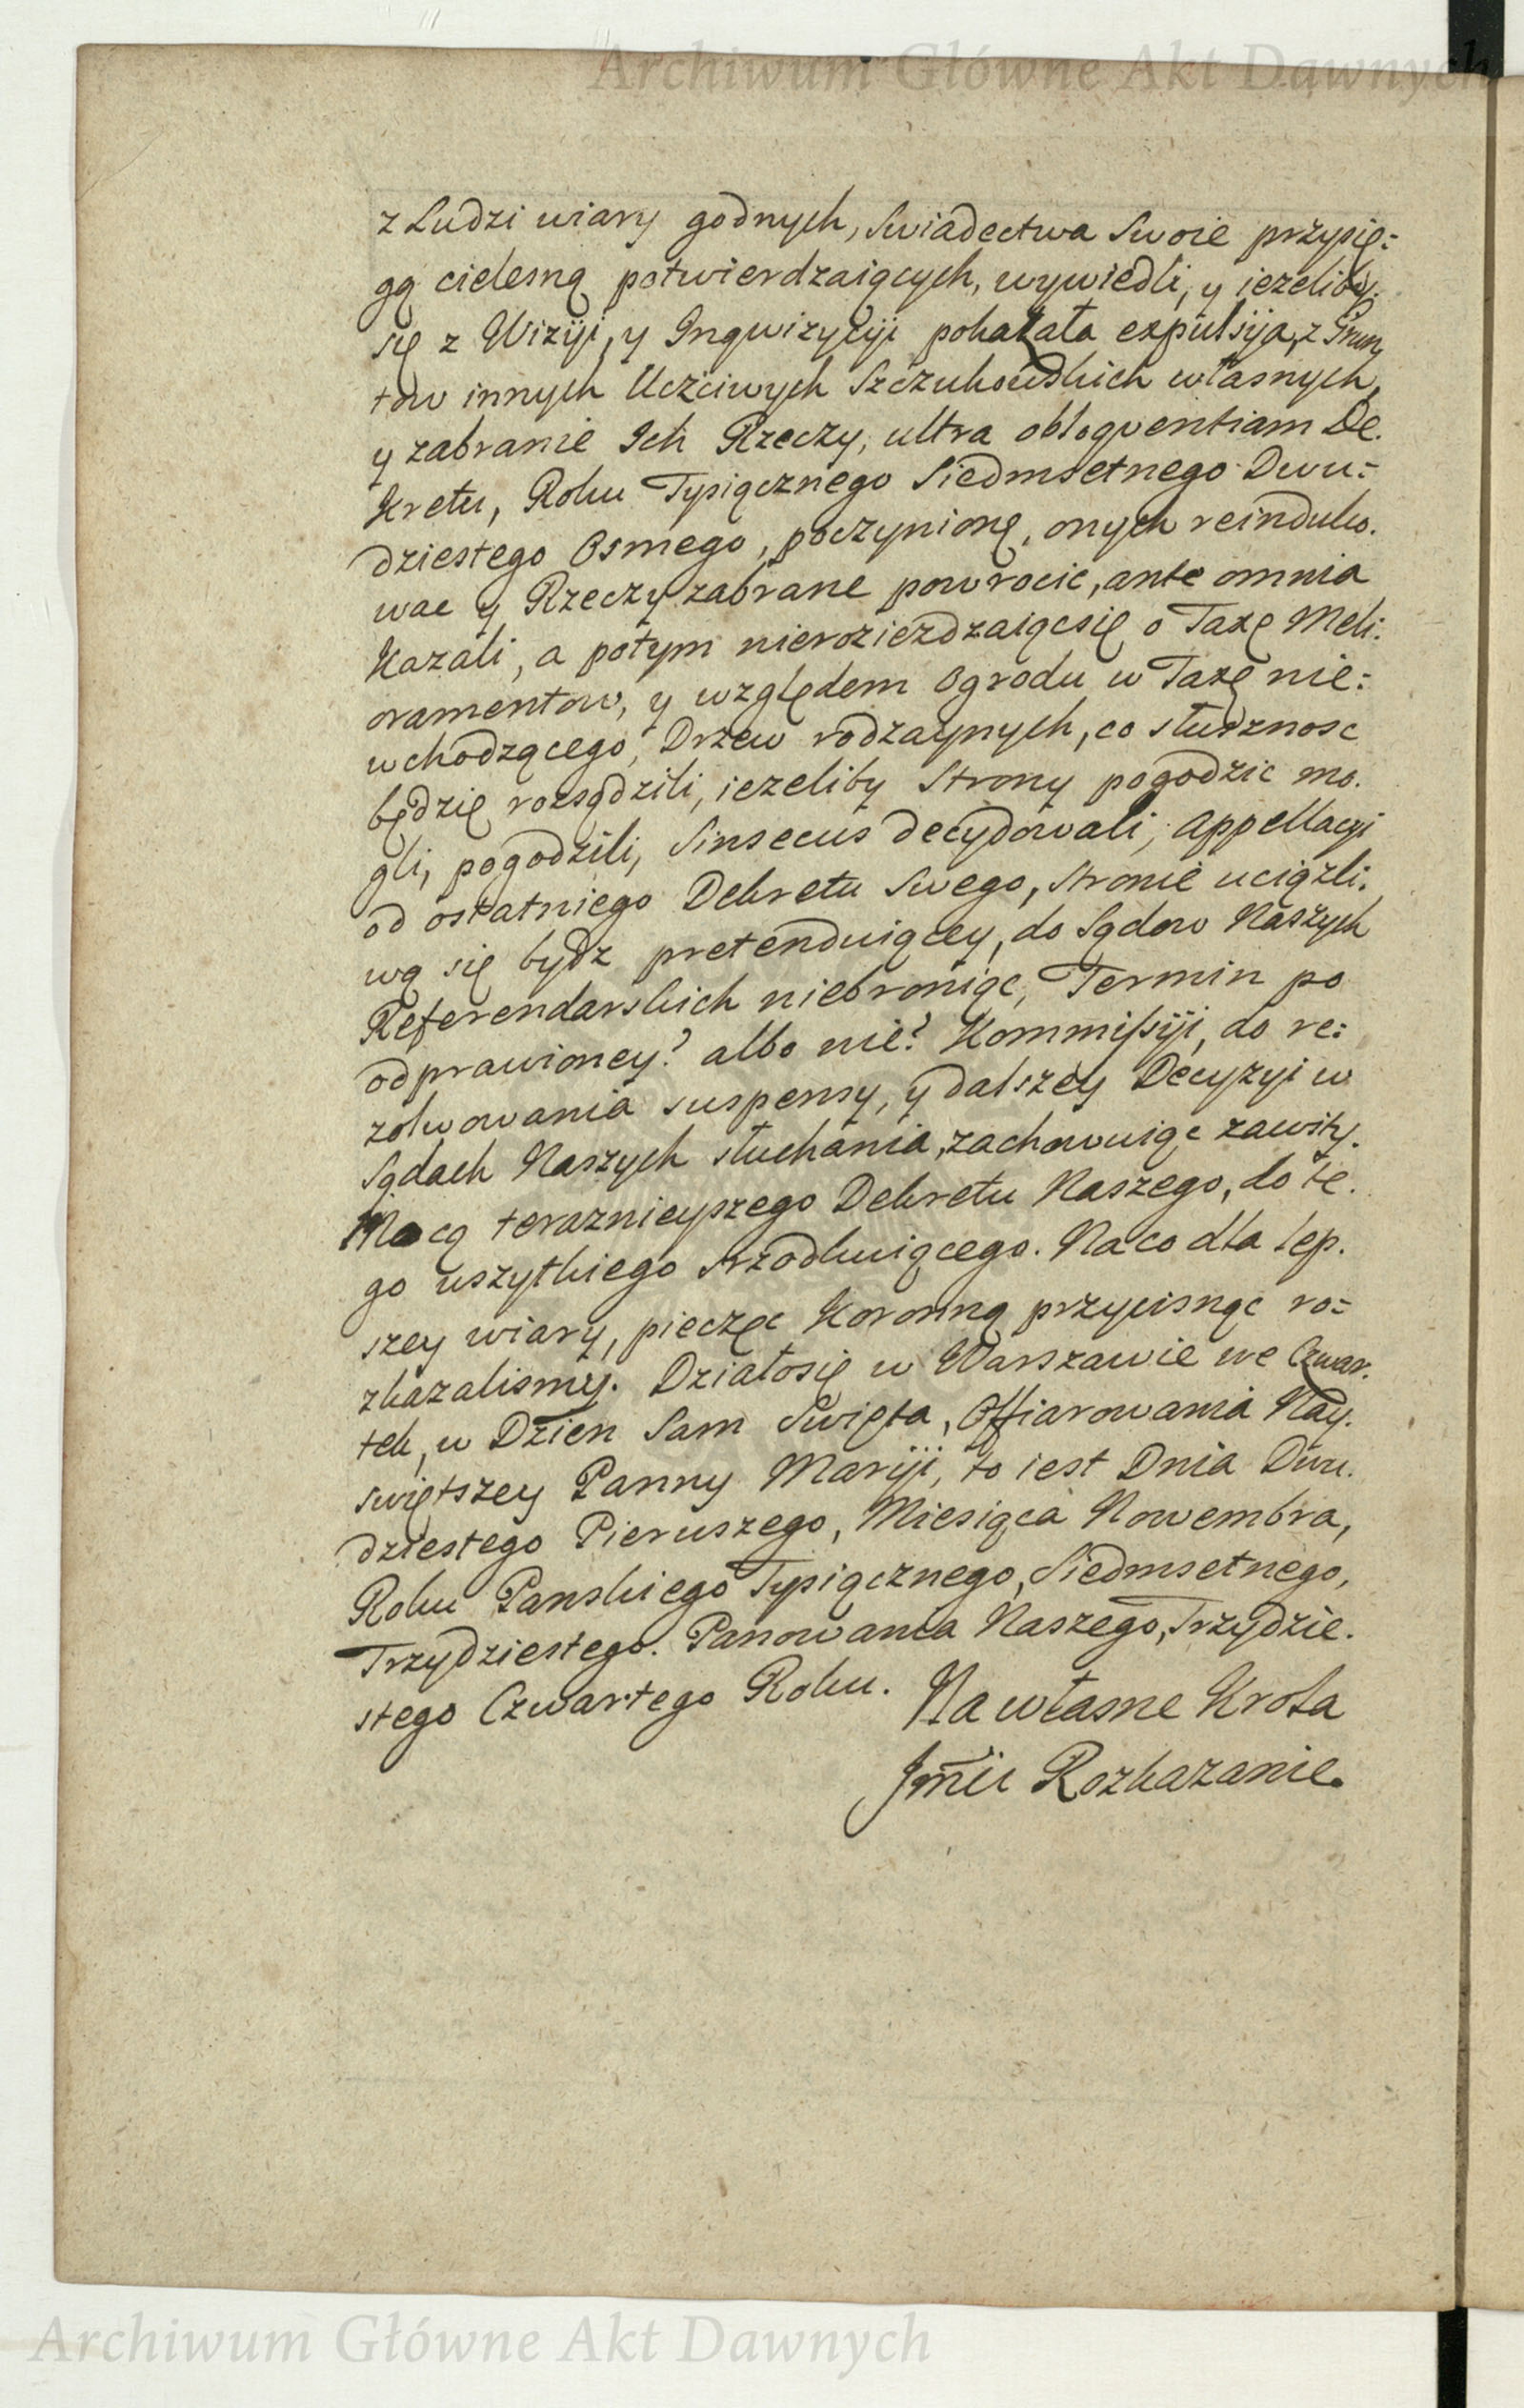 Archiwum Główne Akt Dawnych
z Ludzi wiary godnych, Swiadectwa Swoie przysię=
gą cielesną potwierdzaiących, wywiedli, y iezeliby.
się z Wizyi, y Inqwizycyi pokazała expulsija, z Grun
tow innych Uczciwych Szczukowskich własnych,
y zabranie Ich Rzeczy, ultra obloqventiam De.
kretu, Roku Tysiącznego Siedmsetnego Dwu=
dziestego Osmego, poczynionę, onych reinduko.
wac y Rzeczy zabrane powrocic, ante omnia
Kazali, a potym nierozieżdzaiącsię o Taxę Meli.
oramentow, y względem Ogrodu w Taxę nie=
wchodzącego, Drzew rodzaynych, co słusznosc
będzię rozsądzili, iezeliby Strony pogodzic mo.
gli, pogodzili, Sinsecus decydowali, Appellacyi
od ostatniego Dekretu Swego, stronie uciązli.
wą się bydz pretenduiącey, do Sądow Naszych
Referendarskich niebroniąc, Termin po
odprawioney? albo nie? Kommissyi, do re=
zolwowania suspensy, y dalszey Decyzyi w
Sądach Naszych słuchania, zachowuiąc zawity.
Mocą teraznieyszego Dekretu Naszego, do te.
go wszytkiego srzodkuiącego. Na co dla lep.
szey wiary, pieczęc Koronną przycisnąc ro=
zkazalismy. Działosię w Warszawie we Czwar.
tek, w Dzien Sam Swięta, Offiarowania Nay.
swiętszey Panny Maryi, to iest Dnia Dwu.
dziestego Pierwszego, Miesiąca Nowembra,
Roku Panskiego Tysiącznego, Siedmsetnego,
Trzydziestego. Panowania Naszego, Trzydzie.
stego Czwartego Roku. Na własne Krola
Jmci Rozkazanie.
Archiwum Główne Akt Dawnych